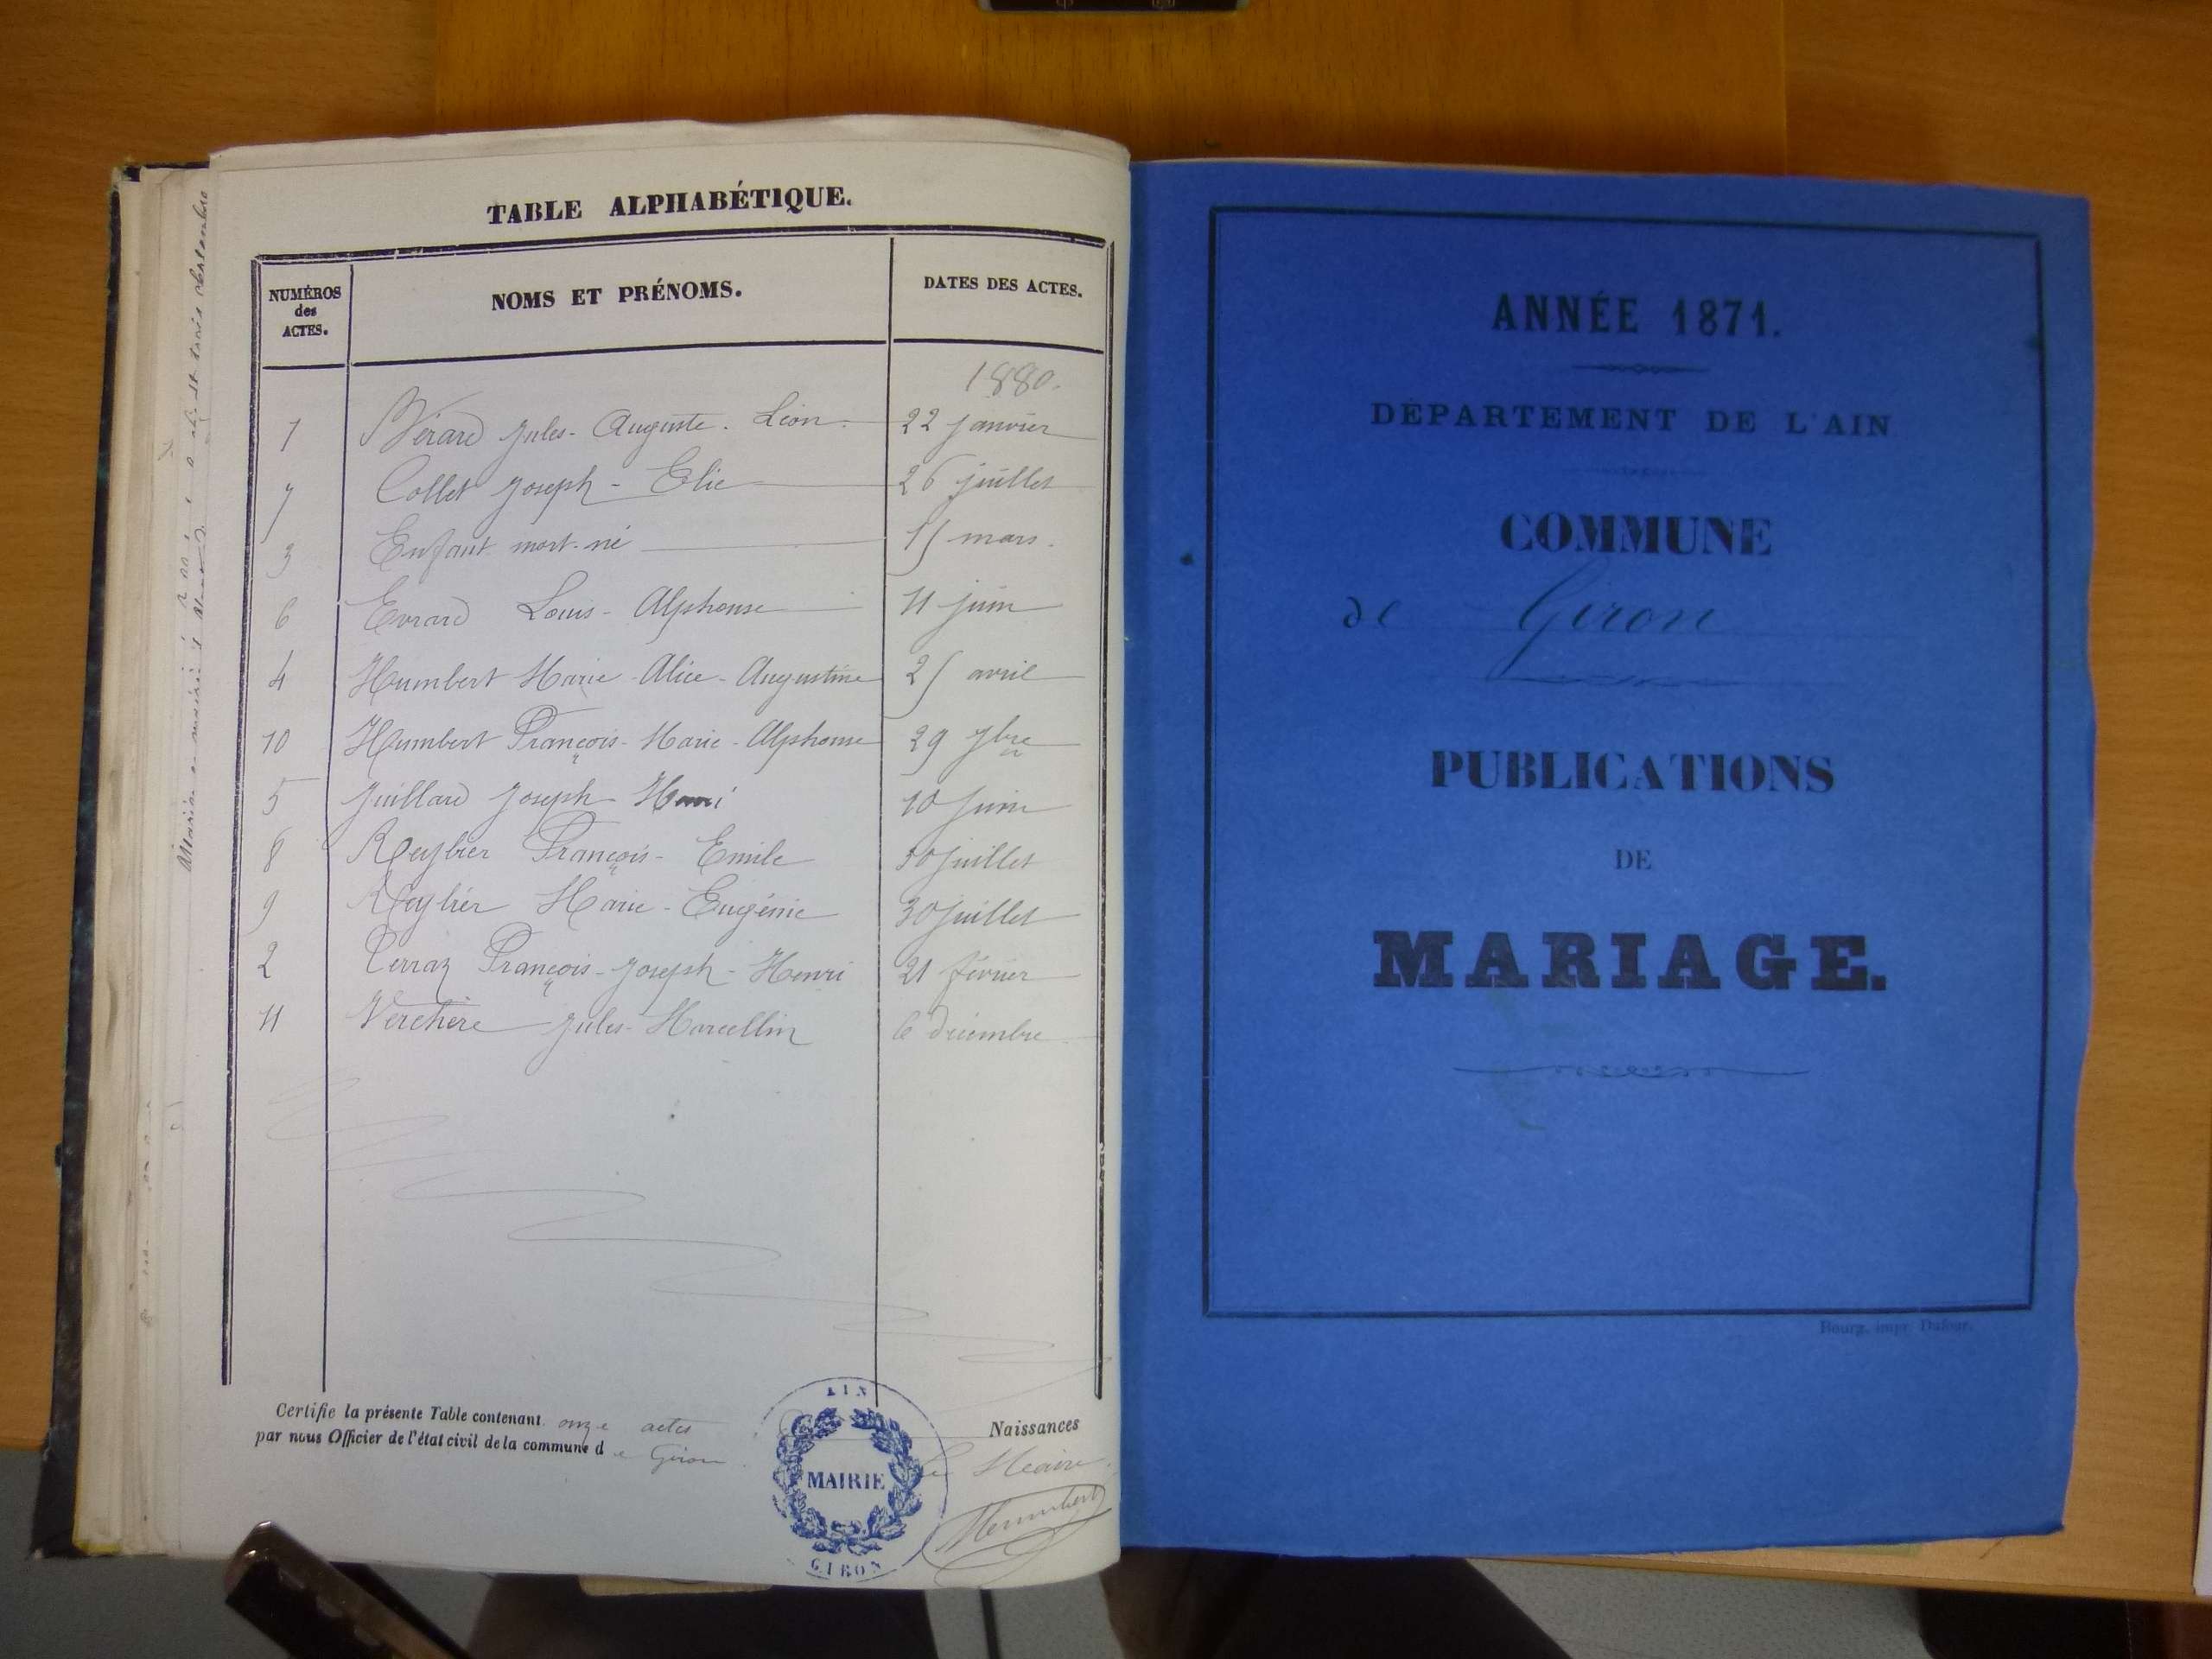 TABLE ALPHABÉTIQUE.
NUMÉROS
des
ACTES.
NOMS ET PRÉNOMS.
DATES DES ACTES.
1880.
1 Bérard Jules-Auguste. Léon. 22 janvier
7 Collet Joseph-Elie 26 juillet
3 Enfant mort-né 15 mars.
6 Evrard Louis-Alphonse 11 juin
4 Humbert Marie-Alice-Augustine 25 avril
10 Humbert François-Marie-Alphonse 29 7bre
5 Juillard Joseph Henri 10 Juin
8 Reybier François-Emile 30 Juillet
9 Reybier Marie-Eugénie 30 Juillet
2 Perraz François-Joseph-Henri 21 février
11 Verchère Jules-Marcellin 6 décembre
Certifie la présente Table contenant onze actes Naissances
par nous Officier de l'état civil de la commune de Giron.
Le Maire.
Humbert
AIN
MAIRIE
GIRON
ANNÉE 1871.
DÉPARTEMENT DE L'AIN
COMMUNE
de Giron
PUBLICATIONS
DE
MARIAGE.
Bourg, impr. Dufour.